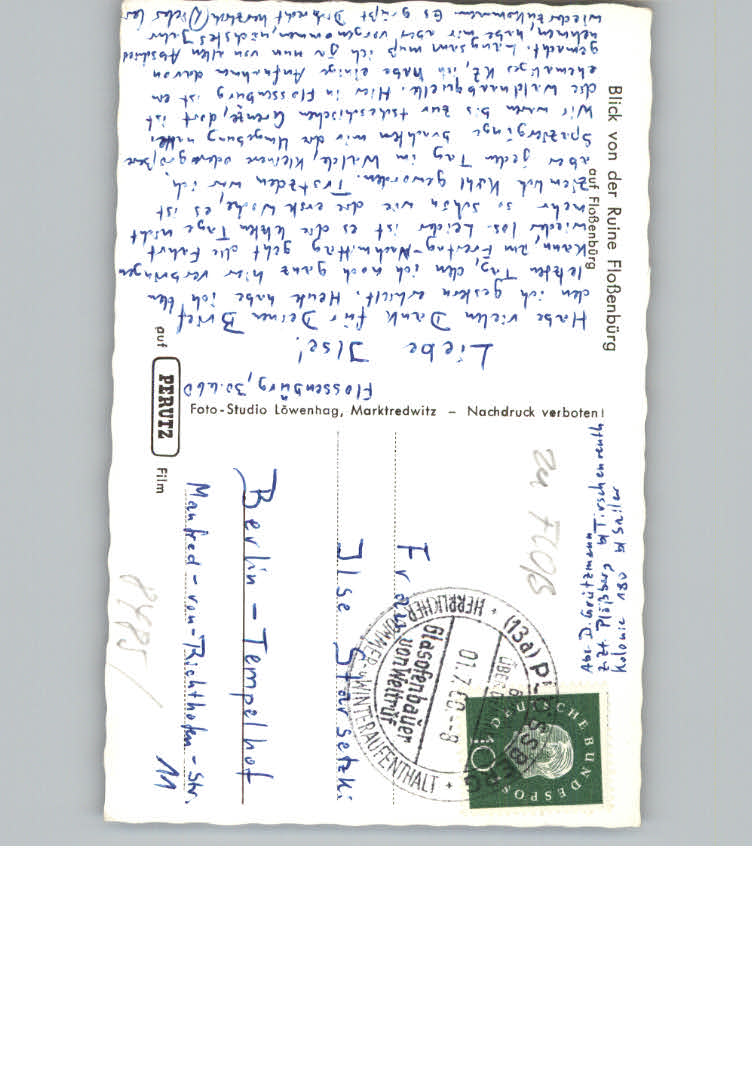 Blick von der Ruine Floßenbürg
auf Floßenbürg
Flossenbürg, 30.6.60
Liebe Ilse!
Habe vielen Dank für Deinen Brief
den ich gestern erhielt. Heute habe ich den
letzten Tag, den ich noch ganz hier verbringen
kann, am Freitag-Nachmittag geht die Fahrt
wieder los. Leider ist es die letzten Tage nicht
mehr so schön wie die erste Woche, es ist
ziemlich kühl geworden. Trotzdem war ich
aber jeden Tag im Walde, kleinere oder größere
Spaziergänge brachten mir die Umgebung näher.
Wir waren bis zur tschechischen Grenze, dort ist
die Waldnaabquelle. Hier in Flossenburg ist ein
ehemaliges KZ, ich habe einige Aufnahmen davon
gemacht. Langsam muß ich ja nun von allem Abschied
nehmen, habe mir aber vorgenommen, nächstes Jahr
wiederzukommen. Es grüßt Dich recht herzlich
auf
PERUTZ
Film
Foto-Studio Löwenhag, Marktredwitz – Nachdruck verboten!
Abs. D. Grützmann
z. Zt. Plößberg b/Tirschenreuth
Kolonie 180 b/ Sailer
zu Floß
(13a) PLÖSSBERG
01.7.60.-8
Glasofenbauer
von Weltruf
HERRLICHER SOMMER-WINTERAUFENTHALT
DEUTSCHE BUNDESPOST
10
Frau
Ilse Starsetzki
Berlin-Tempelhof
Manfred-von-Richthofen-Str.
11